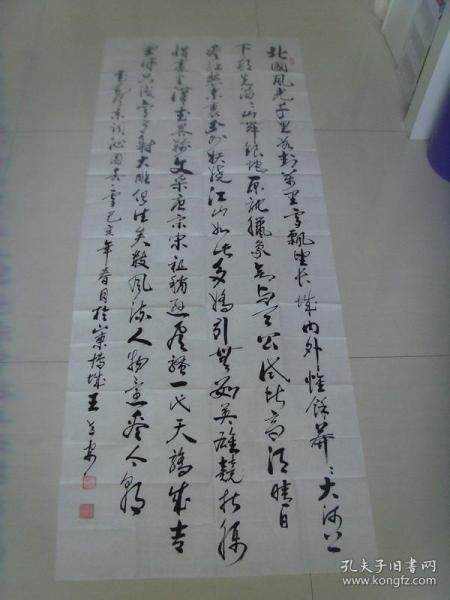 北國風光千里冰封萬里雪飄望长城内外惟余莽〻大河上
下顿失滔〻山舞银蛇原驰腊象欲与天公试比高须晴日
看红装素裹分外妖娆江山如此多嬌引無数英雄競折腰
惜秦皇漢武略输文采唐宗宋祖稍逊風骚一代天驕成吉
思汗只识弯弓射大雕俱往矣数風流人物还看今朝
毛澤東詞沁园春雪己亥年春月於山東
王
孔夫子旧书网
www.kongfz.com